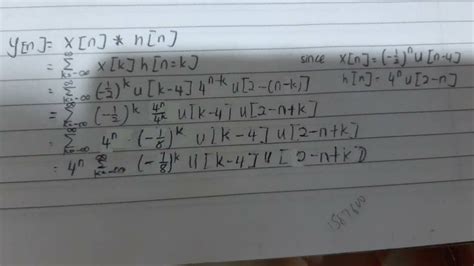 y[n] = x[n] * h[n]
= ∞Σk=-∞ x[k] h[n-k] since x[n] = (-1/2)^n u[n-4]
= ∞Σk=-∞ (-1/2)^k u[k-4] 4^n-k u[2-(n-k)] h[n] = 4^n u[2-n]
= ∞Σk=-∞ (-1/2)^k 4^n/4^k u[k-4] u[2-n+k]
= ∞Σk=-∞ 4^n · (-1/8)^k u[k-4] u[2-n+k]
= 4^n ∞Σk=-∞ (-1/8)^k u[k-4] u[2-n+k]